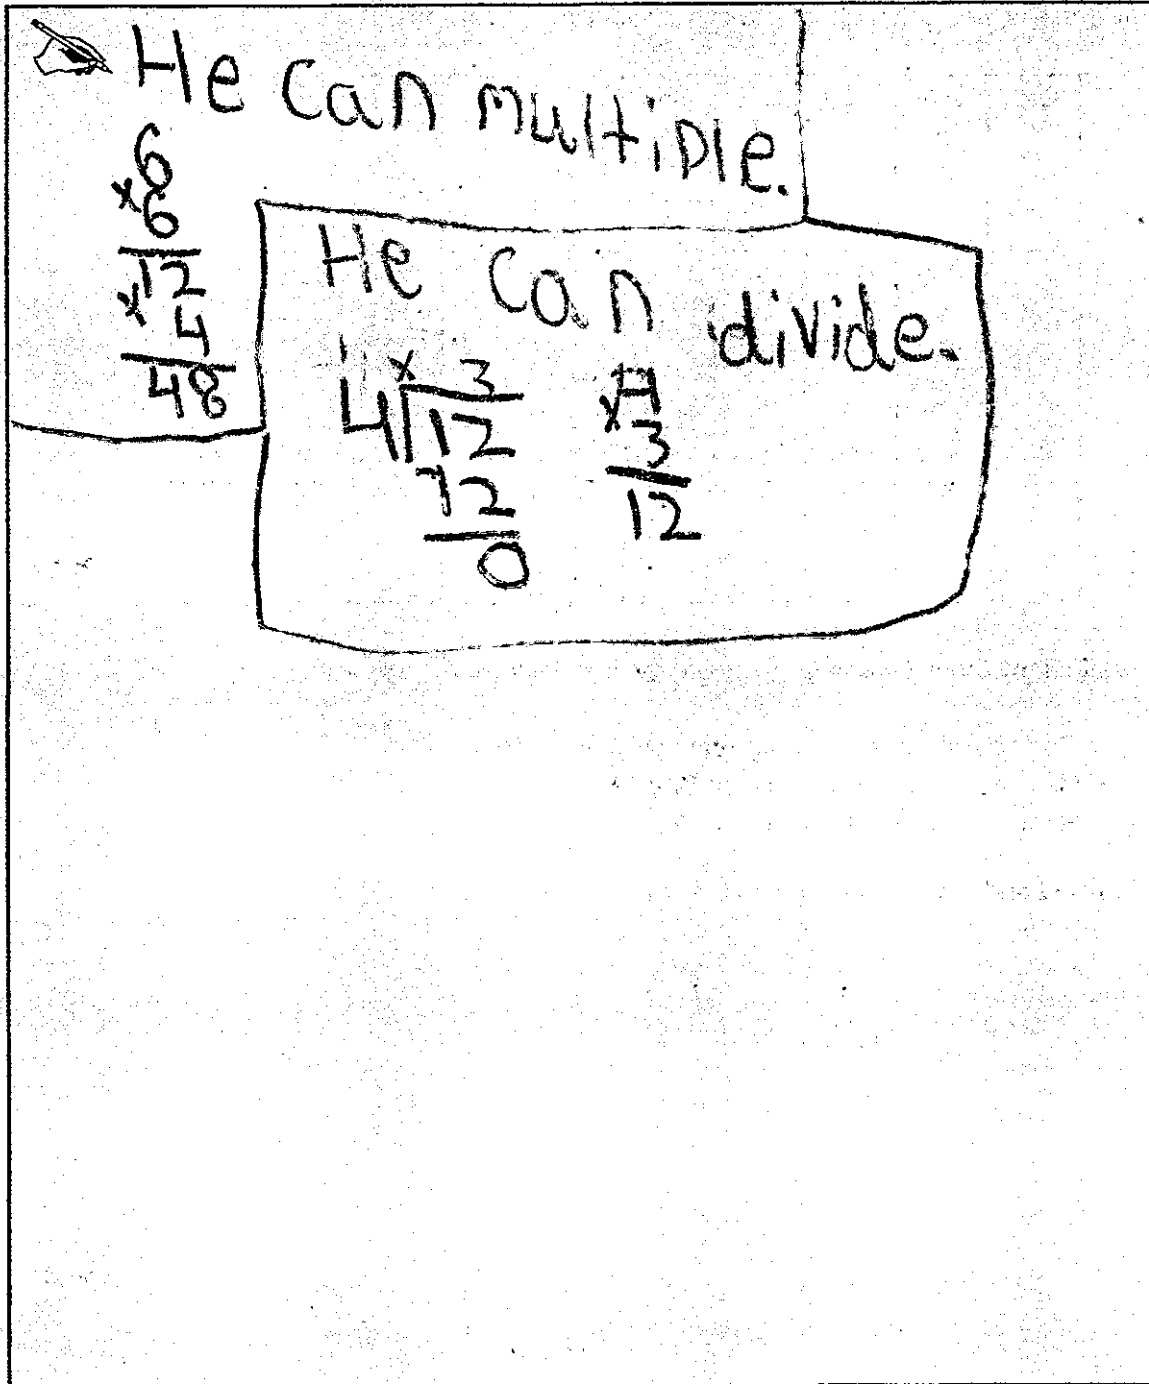 He can multiple.
6
x6
12
x4
48
He can divide.
x 3
4 12
12
0
4
x3
12